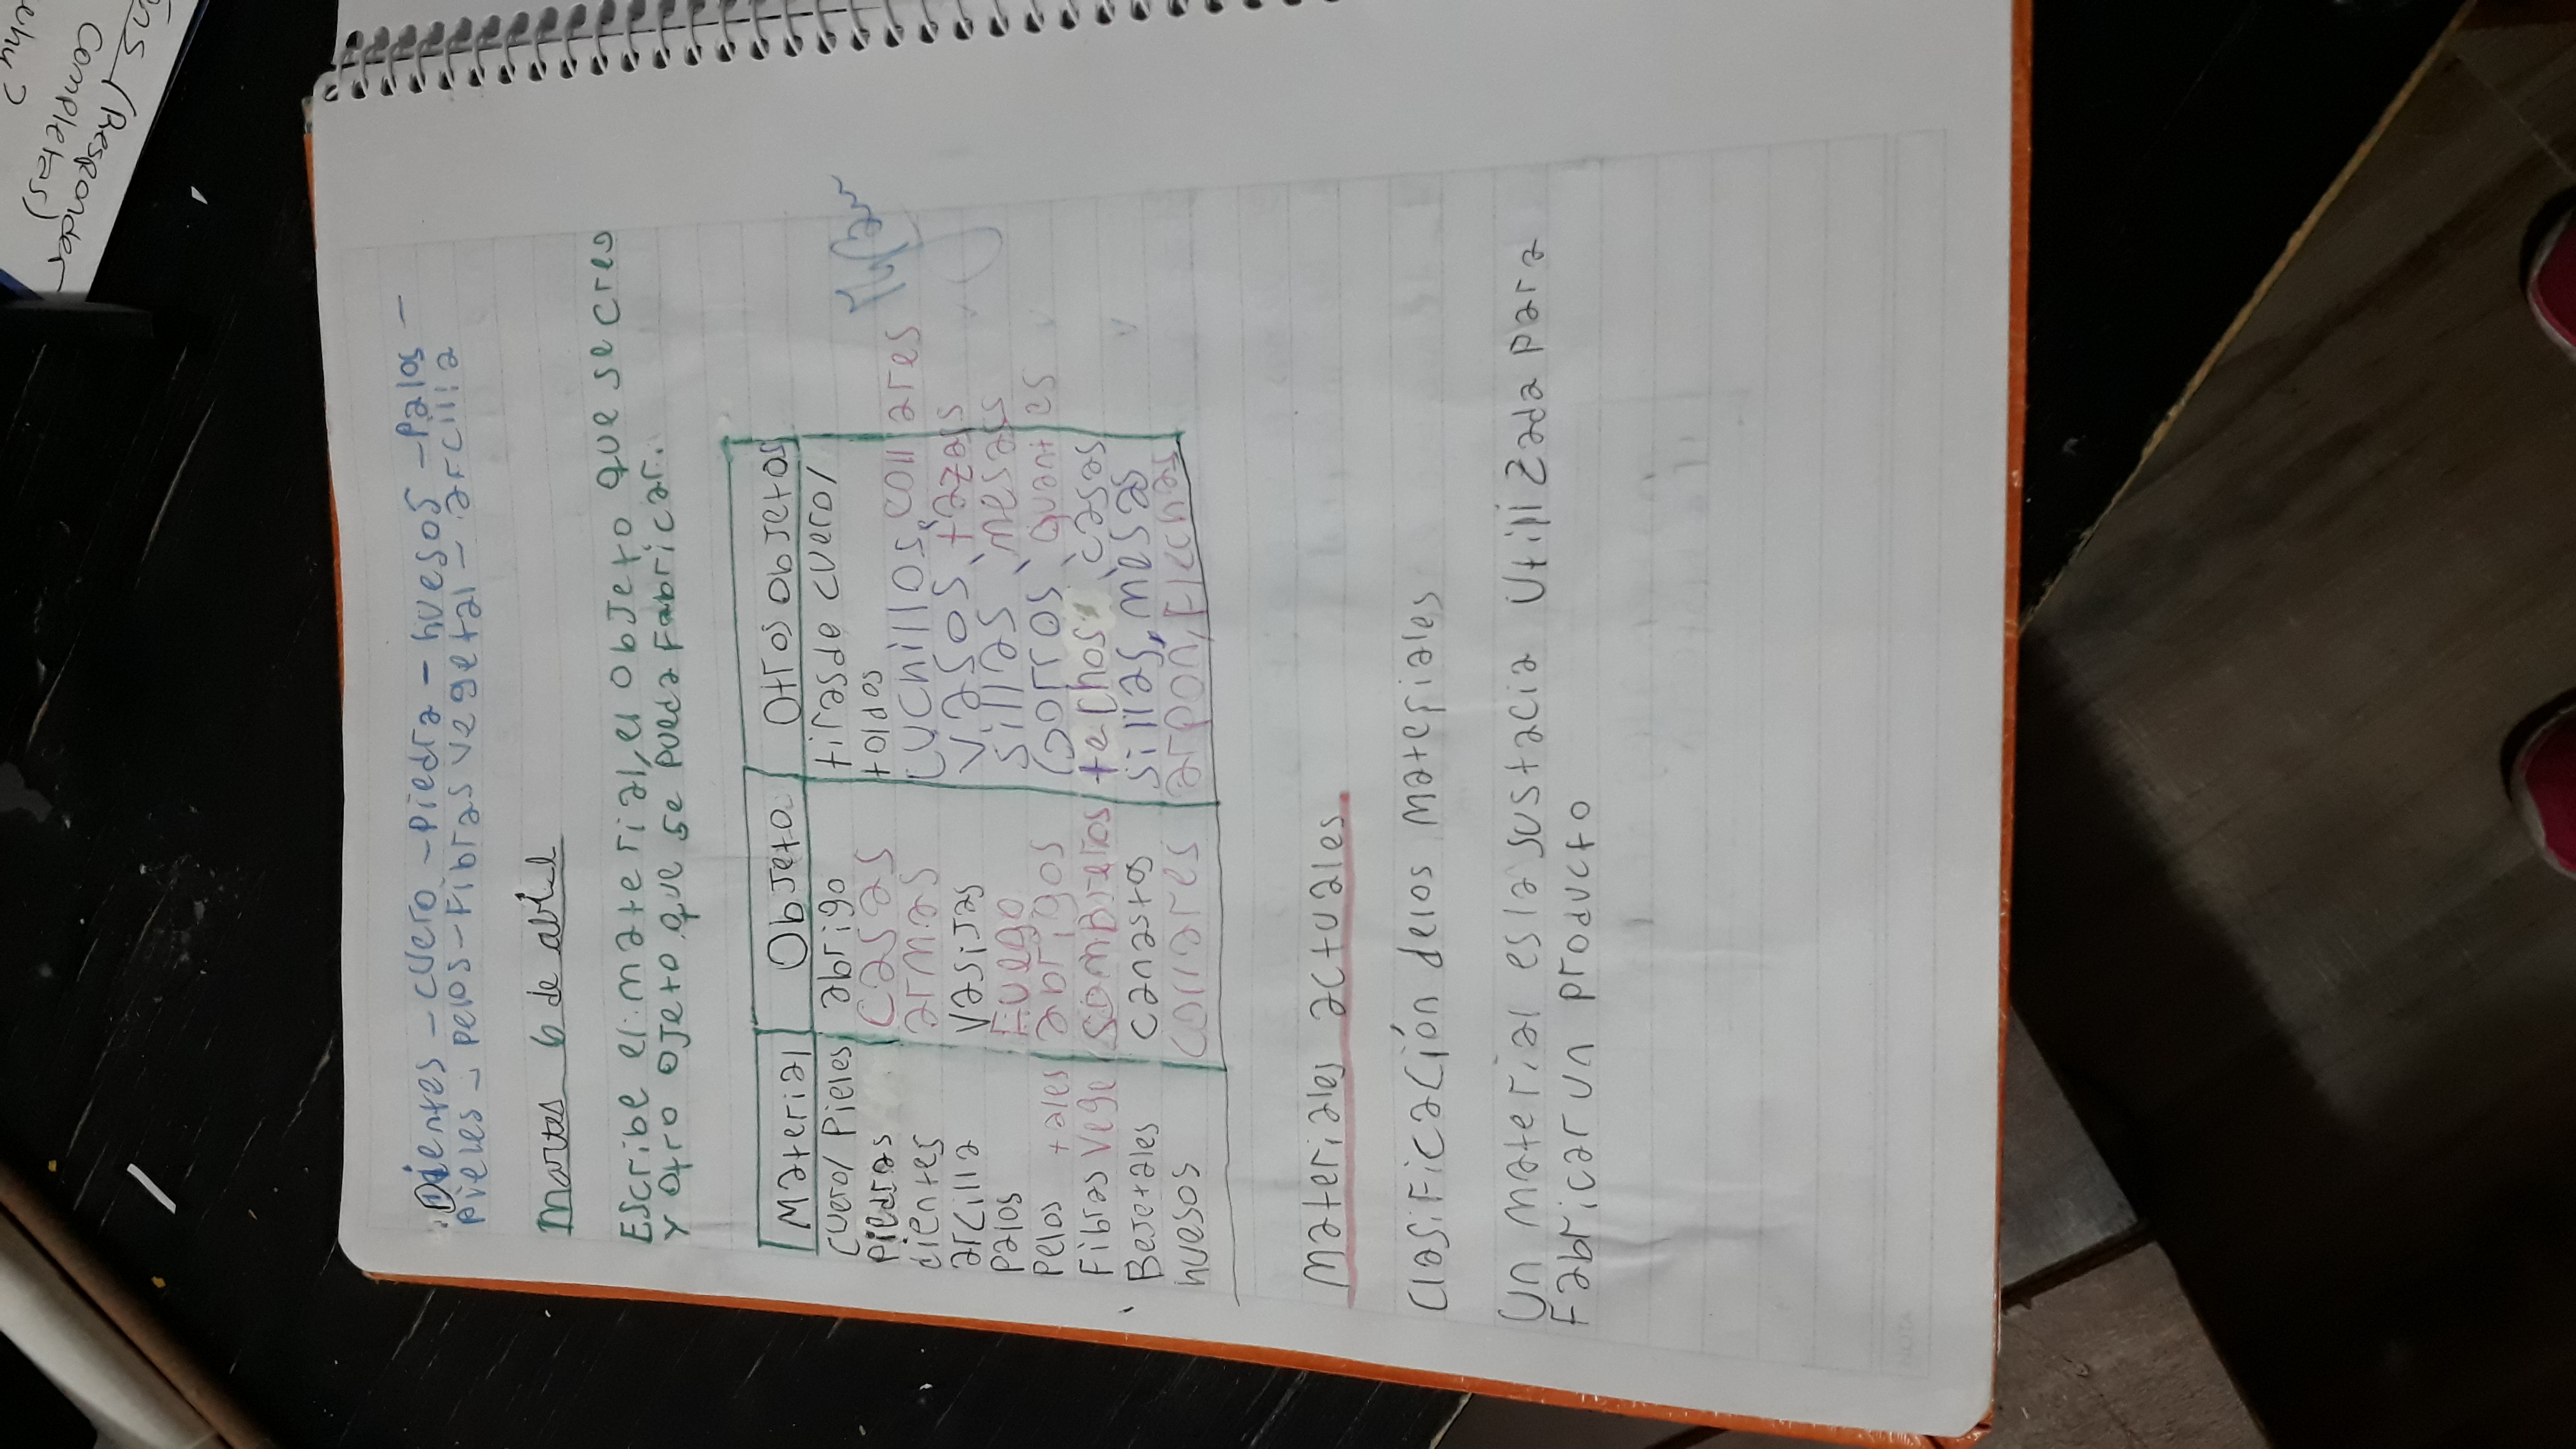 Dientes - cuero - piedra - huesos - Palos -
pieles - pelos - Fibras vegetal - arcilla
Martes 6 de abril
Escribe el material, el objeto que se creo
y otro ojeto que se pueda Fabricar.
Material Objeto Otros objetos
cuero/Pieles abrigo tiras de cuero/
toldos
piedras casas cuchillos, collares
dientes armas vasos, tazas
arcilla vasijas sillas, mesas
palos Fuego Gorros, guantes
pelos abrigos techos, casas
Fibras Vege tales sombreros sillas, mesas
Bejetales canastos arpon, Flechas
huesos collares
Materiales actuales
Clasificación de los materiales
Un material es la sustacia utilizada para
Fabricar un producto
(Responder
completas)